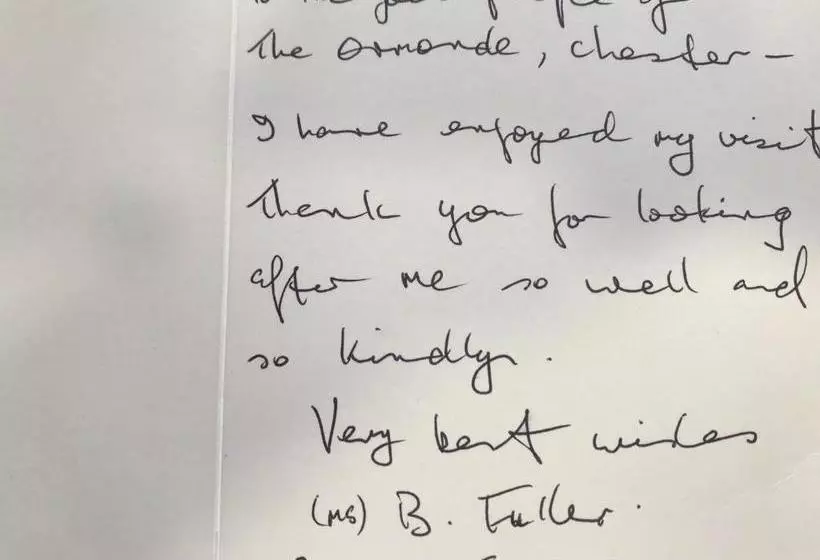 to the good people of
The Ormonde, Chester –
I have enjoyed my visit
Thank you for looking
after me so well and
so kindly.
Very best wishes
(Ms) B. Fuller.